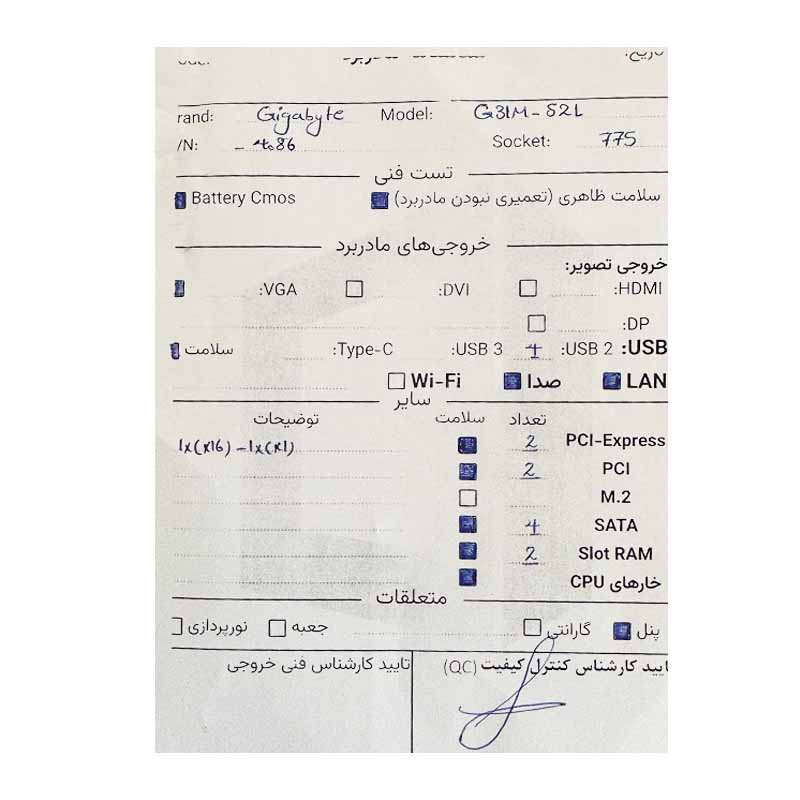 تاریخ:
rand: Gigabyte Model: G31M-S2L
/N: - 4086 Socket: 775
تست فنی
سلامت ظاهری (تعمیری نبودن مادربرد) Battery Cmos
خروجی‌های مادربرد
خروجی تصویر:
HDMI: DVI: VGA:
DP:
USB: USB 2: 4 USB 3: Type-C: سلامت
LAN صدا Wi-Fi
سایر
تعداد سلامت توضیحات
PCI-Express 2 1x(x16) - 1x(x1)
PCI 2
M.2
SATA 4
Slot RAM 2
خارهای CPU
متعلقات
پنل گارانتی جعبه نورپردازی
ایید کارشناس کنترل کیفیت (QC) تایید کارشناس فنی خروجی